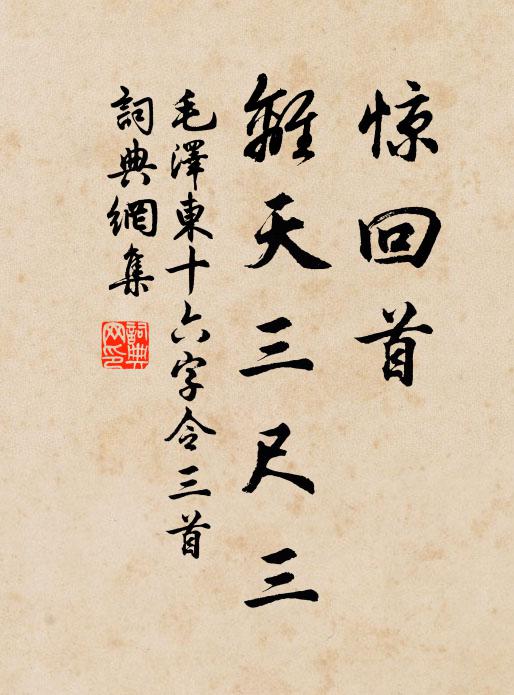 惊回首
離天三尺三
毛澤東十六字令三首
詞典網集
詞典网印